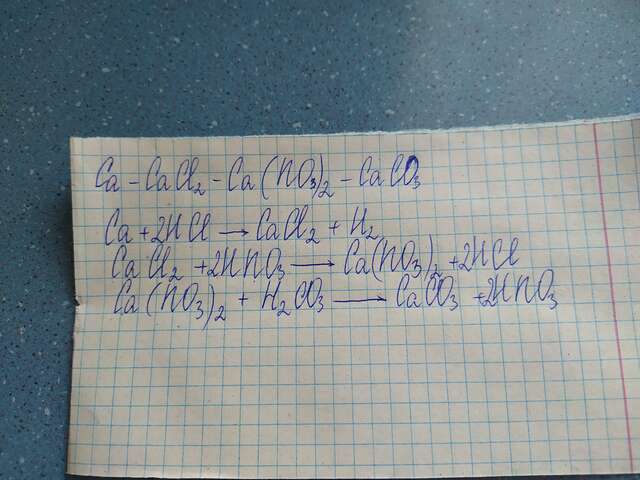 Ca - CaCl₂ - Ca(NO₃)₂ - CaCO₃
Ca + 2HCl → CaCl₂ + H₂
CaCl₂ + 2HNO₃ → Ca(NO₃)₂ + 2HCl
Ca(NO₃)₂ + H₂CO₃ → CaCO₃ + 2HNO₃